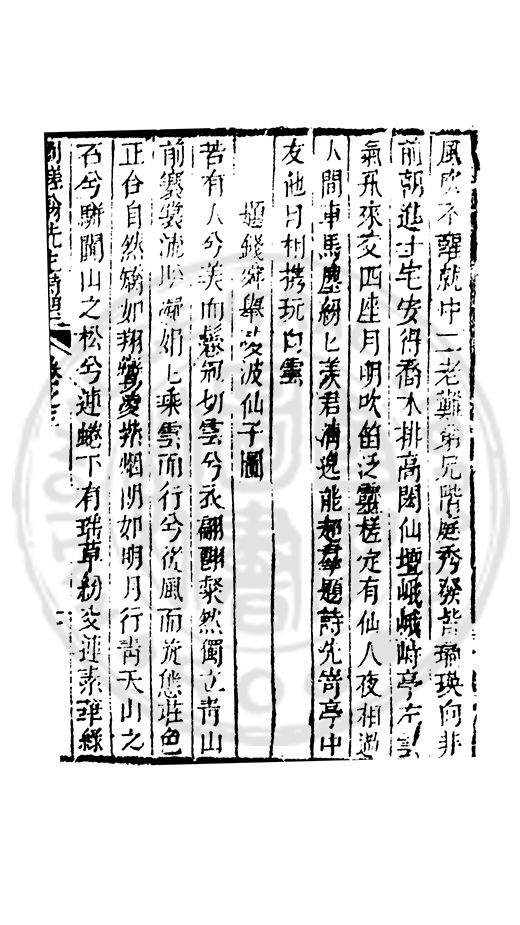 風吹不醒就中二老難弟兄階庭秀發皆瑤瑛向非
前朝進士宅安得喬木排高閎仙壇峨峨峙亭左
氣飛來交四座月明吹笛泛靈槎定有仙人夜相過
人間車馬塵紛匕羡君清逸能超羣題詩先寄亭中
友他日相携玩白雲
題錢舜舉凌波仙子圖
若有人兮美而鬈綱如雲兮衣翩翩粲然獨立青山
前裊裊流盼凝娟匕乘雲而行兮從風而旋態莊色
正合自然矯如翔鸞凌紫烟朗如明月行青天山之
石兮駢闐山之松兮連蜷下有瑤草紛交連素華綠
先生 卷之